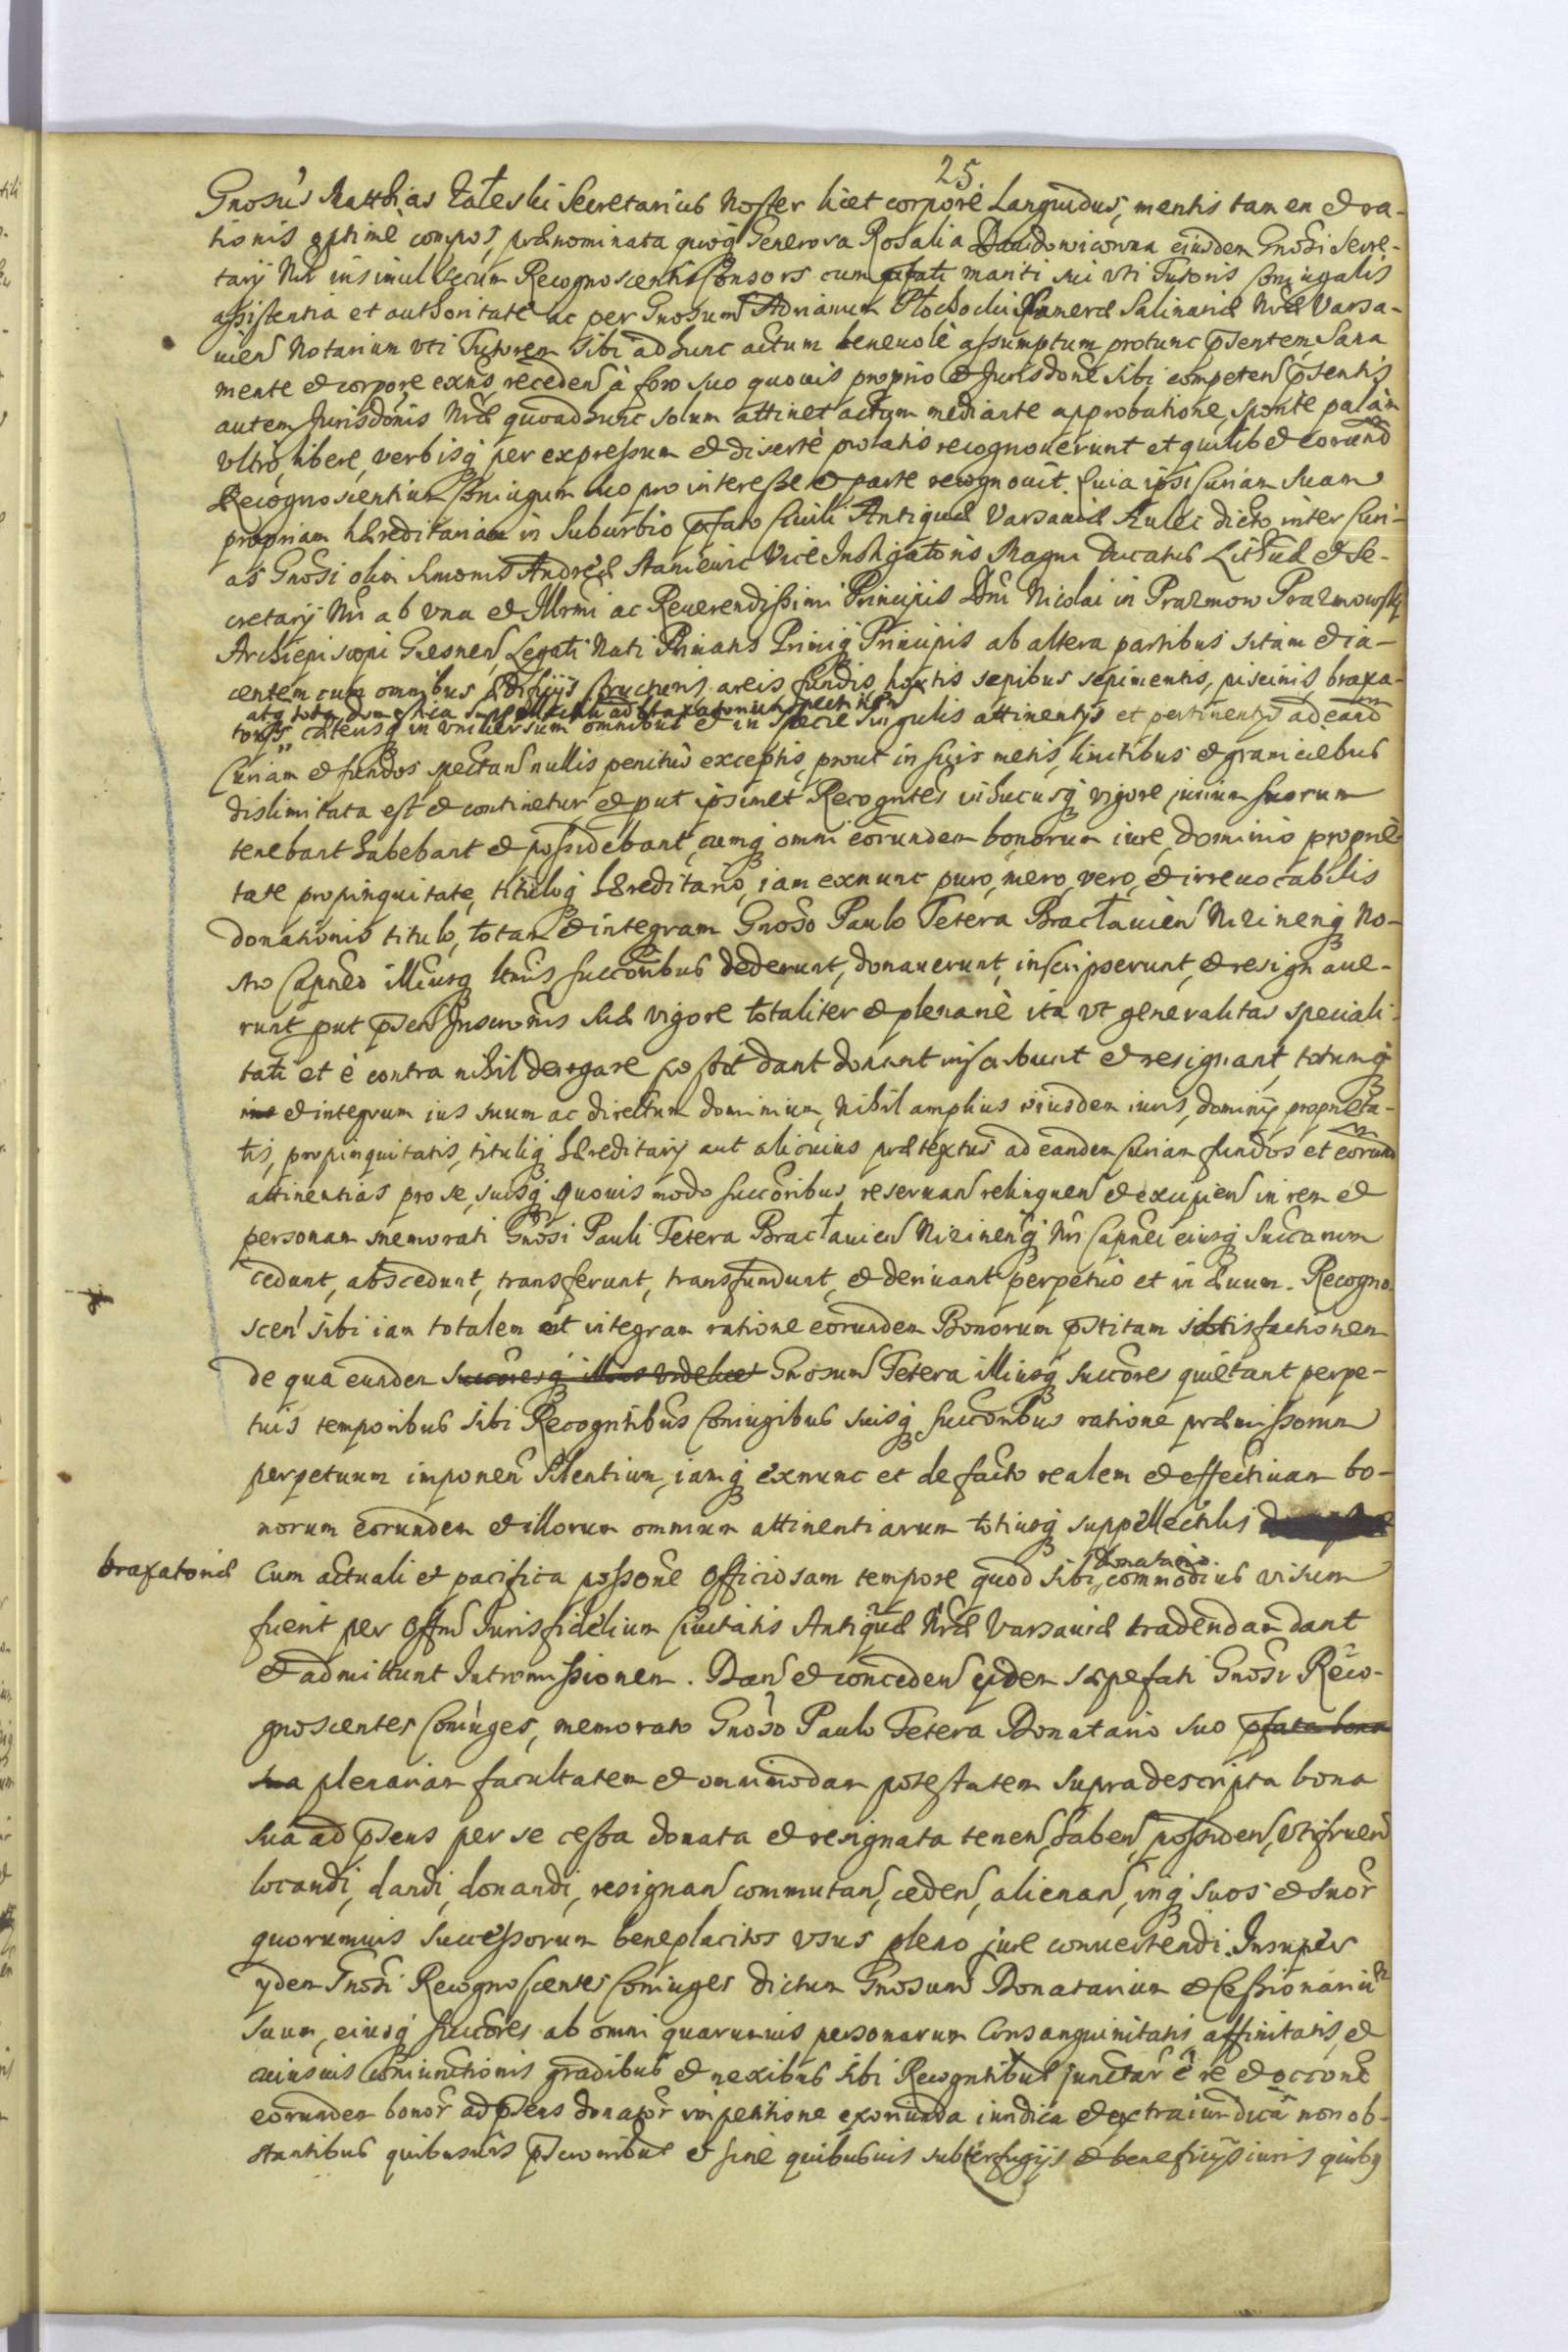 25.
Gnosus Matthias Zaleski Secretarius Noster licet corpore Languidus, mentis tamen et ra-
tionis optimè compos, prænominata quoq Generosa Rosalia Dawidowiczowna eiusdem Gnosi Secre-
tarij Nri insimul secum Recognoscentis Consors cum pfati mariti sui vti Tutoris Coniugalis
assistentia et authoritate ac per Gnosum Adrianum Płochocki Cameræ Salinariæ Nræ Varsa-
vien Notarium vti Tutorem sibi ad hunc actum beneuolè assumptum protunc psentem, Sana
mente et corpore exns, receden à foro suo quouis proprio et Jurisdone sibi competen psentis
autem Jurisdonis Nræ quoad hunc solum attinet actum mediante approbatione, sponte palàm
vltrò, libere, verbisq per expressum et disertè prolatis recognouerunt et quilibet eorund
Recognoscentium Coniugum suo pro interesse et parte recognouit. Quia ipsi Curiam Suam
propriam hæreditariam in Suburbio pfato Ciuili Antiquæ Varsauiæ Aulec dicto, inter Curi-
as Gnosi olim Simonis Andreæ Staniewic Vice Instigatoris Magni Ducatus Lithuæ et Se-
cretarij Nri ab vna et Illrmi ac Reuerendissimi Principis Dni Nicolai in Prazmow Prazmowsky
Archiepiscopi Gnesnen, Legati Nati Primatis Primiq Principis ab altera partibus sitam et ia-
centem cum omnibus ædificijs structuris, areis, fundis, hortis sepibus sepimentis, piscinis, braxa-
atq tota domestica suppellectili ad braxatorium spectan
torijs, cæterisq in vniuersum omnibus et in specie singulis attinentijs et pertinentijs ad eand
Curiam et fundos spectan nullis penitùs exceptis, prout in suis metis, limitibus et graniciebus
dislimitata est et continetur, et put ipsimet Recogntes in hucusq vigore jurium suorum
tenebant habebant et possidebant, cumq omni eorundem bonorum iure, dominio proprie-
tate propinquitate, tituloq hæreditario, iam exnunc puro, mero, vero, et irreuocabilis
donationis titulo, totam et integram Gnoso Paulo Tetera Bracłauien Nizinenq No-
stro Capneo illiusq ltmis succoribus dederunt, donauerunt, inscripserunt, et resignaue-
runt put psen Inscronis suæ vigore totaliter et plenariè ita vt generalitas speciali-
tati et è contra nihil derogare possit dant donant inscribunt et resignant, totumq
et integrum ius suum ac directum dominium, Nihil amplius eiusdem iuris, dominij proprieta-
tis, propinquitatis, tituliq hæreditarij aut alicuius prætextus ad eandem Curiam fundos et eorund
attinentias pro se, suisq quouis modo succoribus reseruan relinquen et excipien in rem et
personam memorati Gnosi Pauli Tetera Bracłauien Nizinenq Nri Capnei eiusq Succorum
cedunt, abscedunt, transferunt, transfundunt, et deriuant perpetuò et in æuum. Recogno-
scen sibi iam totalem et integram ratione eorundem Bonorum pstitam satisfactionem
de qua eundem Gnosum Tetera illiusq succores quietant perpe-
tuis temporibus sibi Recogntibus Coniugibus suisq succoribus ratione præmissorum
perpetuum imponen silentium, iamq exnunc et de facto realem et effectiuam bo-
norum eorundem et illorum omnium attinentiarum totiusq suppellectilis
braxatoriæ cum actuali et pacifica possone Officiosam tempore quod sibi donatario commodius visum
fuerit per Offm Jurisfidelium Ciuitatis Antiquæ Nræ Varsauiæ tradendam dant
et admittunt Intromissionem. Dan et conceden ijdem sæpefati Gnosi Reco-
gnoscentes Coniuges, memorato Gnoso Paulo Tetera Donatario suo pfata bona
sua plenariam facultatem et omnimodam potestatem supradescripta bona
sua ad psens per se cessa donata et resignata tenen, haben, possiden, vtifruen
locandi, dandi, donandi, resignan, commutan, ceden, alienan, inq suos et suor
quorumuis successorum beneplacitos vsus pleno jure conuertendi. Insuper
ijdem Gnosi Recognoscentes Coniuges dictum Gnosum Donatarium et Cessionariu
suum, eiusq succores ab omni quarumuis personarum Consanguinitatis affinitatis, et
cuiusuis Coniunctionis gradibus et nexibus sibi Recogntibus junctar è re et occone
eorundem bonor ad psens donator impetitione exoriunda iuridica et extraiuridica non ob-
stantibus quibusuis pscronibus et sine quibusuis subterfugijs et beneficijs iuris quibq